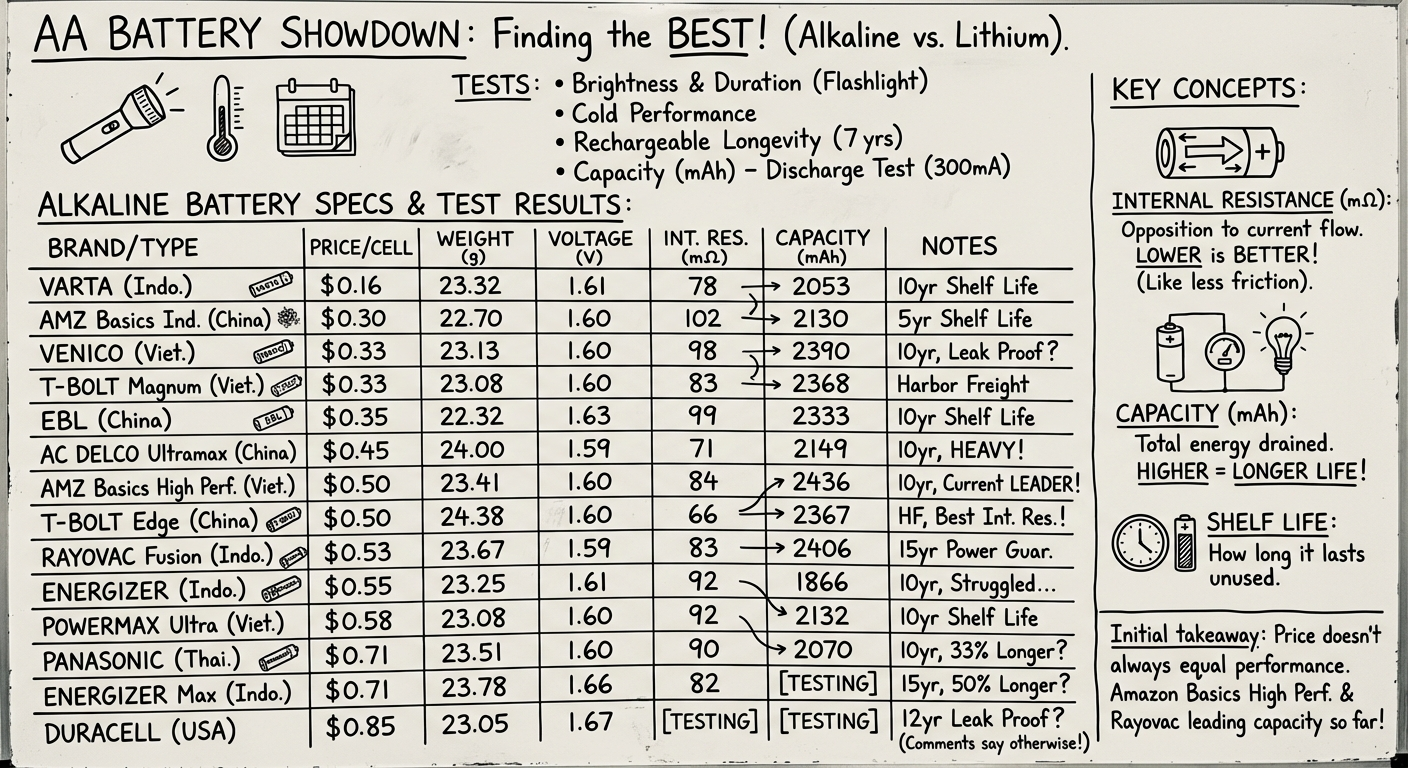 AA BATTERY SHOWDOWN: Finding the BEST! (Alkaline vs. Lithium).
TESTS: • Brightness & Duration (Flashlight)
• Cold Performance
• Rechargeable Longevity (7 yrs)
• Capacity (mAh) – Discharge Test (300mA)
ALKALINE BATTERY SPECS & TEST RESULTS:
BRAND/TYPE PRICE/CELL WEIGHT (g) VOLTAGE (V) INT. RES. (mΩ) CAPACITY (mAh) NOTES
VARTA (Indo.) $0.16 23.32 1.61 78 → 2053 10yr Shelf Life
AMZ Basics Ind. (China) $0.30 22.70 1.60 102 → 2130 5yr Shelf Life
VENICO (Viet.) $0.33 23.13 1.60 98 → 2390 10yr, Leak Proof?
T-BOLT Magnum (Viet.) $0.33 23.08 1.60 83 → 2368 Harbor Freight
EBL (China) EBL $0.35 22.32 1.63 99 2333 10yr Shelf Life
AC DELCO Ultramax (China) $0.45 24.00 1.59 71 2149 10yr, HEAVY!
AMZ Basics High Perf. (Viet.) $0.50 23.41 1.60 84 2436 10yr, Current LEADER!
T-BOLT Edge (China) $0.50 24.38 1.60 66 → 2367 HF, Best Int. Res.!
RAYOVAC Fusion (Indo.) $0.53 23.67 1.59 83 → 2406 15yr Power Guar.
ENERGIZER (Indo.) $0.55 23.25 1.61 92 1866 10yr, Struggled...
POWERMAX Ultra (Viet.) $0.58 23.08 1.60 92 2132 10yr Shelf Life
PANASONIC (Thai.) $0.71 23.51 1.60 90 2070 10yr, 33% Longer?
ENERGIZER Max (Indo.) $0.71 23.78 1.66 82 [TESTING] 15yr, 50% Longer?
DURACELL (USA) $0.85 23.05 1.67 [TESTING] [TESTING] 12yr Leak Proof?
(Comments say otherwise!)
KEY CONCEPTS:
+
INTERNAL RESISTANCE (mΩ):
Opposition to current flow.
LOWER is BETTER!
(Like less friction).
CAPACITY (mAh):
Total energy drained.
HIGHER = LONGER LIFE!
SHELF LIFE:
How long it lasts
unused.
Initial takeaway: Price doesn't
always equal performance.
Amazon Basics High Perf. &
Rayovac leading capacity so far!